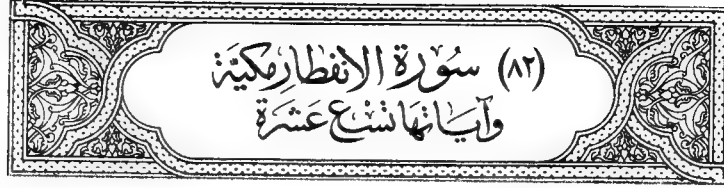 (٨٢) سُوْرَة الانفطارمَكيَّة
وَآيَاتهَا تسْع عَشَرَة